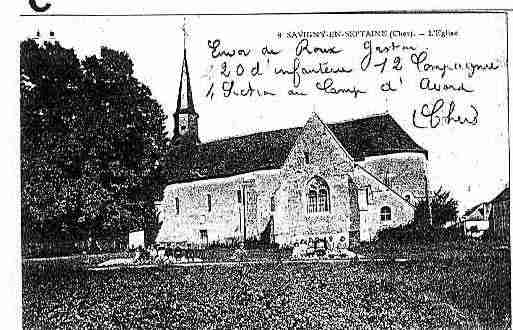 C
8 SAVIGNY-EN-SEPTAINE (Cher). — L'Eglise
Envoi de Roux Gaston
20 d'infanterie 12 Compagnie
1, Section au Camp d'Avord
(Cher)